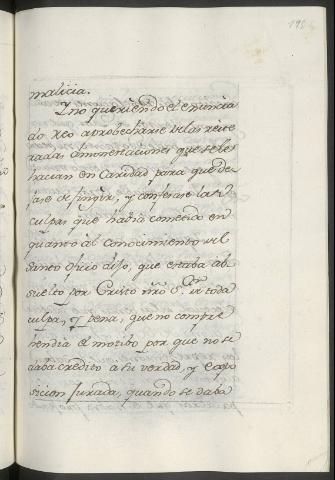 malicia.
Y no queriendo el enuncia
do Reo aprobecharse de las reite
radas amonestaciones que se le
hacian en Caridad para que de
jase de fingir, y confesase las
culpas que habia cometido en
quanto al Conocimiento del
Santo Oficio dijo, que estaba ab
suelto por Cristo nro S.or de toda
culpa, y pena, que no compre
hendia el motibo por que no se
daba credito a su verdad, y Expo
sicion Jurada, quando se daba